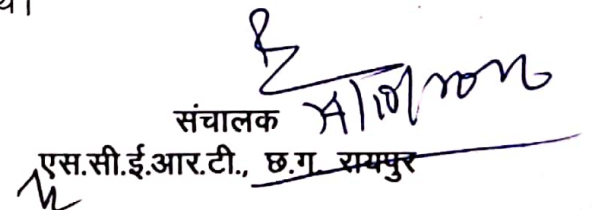 था।
संचालक
एस.सी.ई.आर.टी., छ.ग. रायपुर